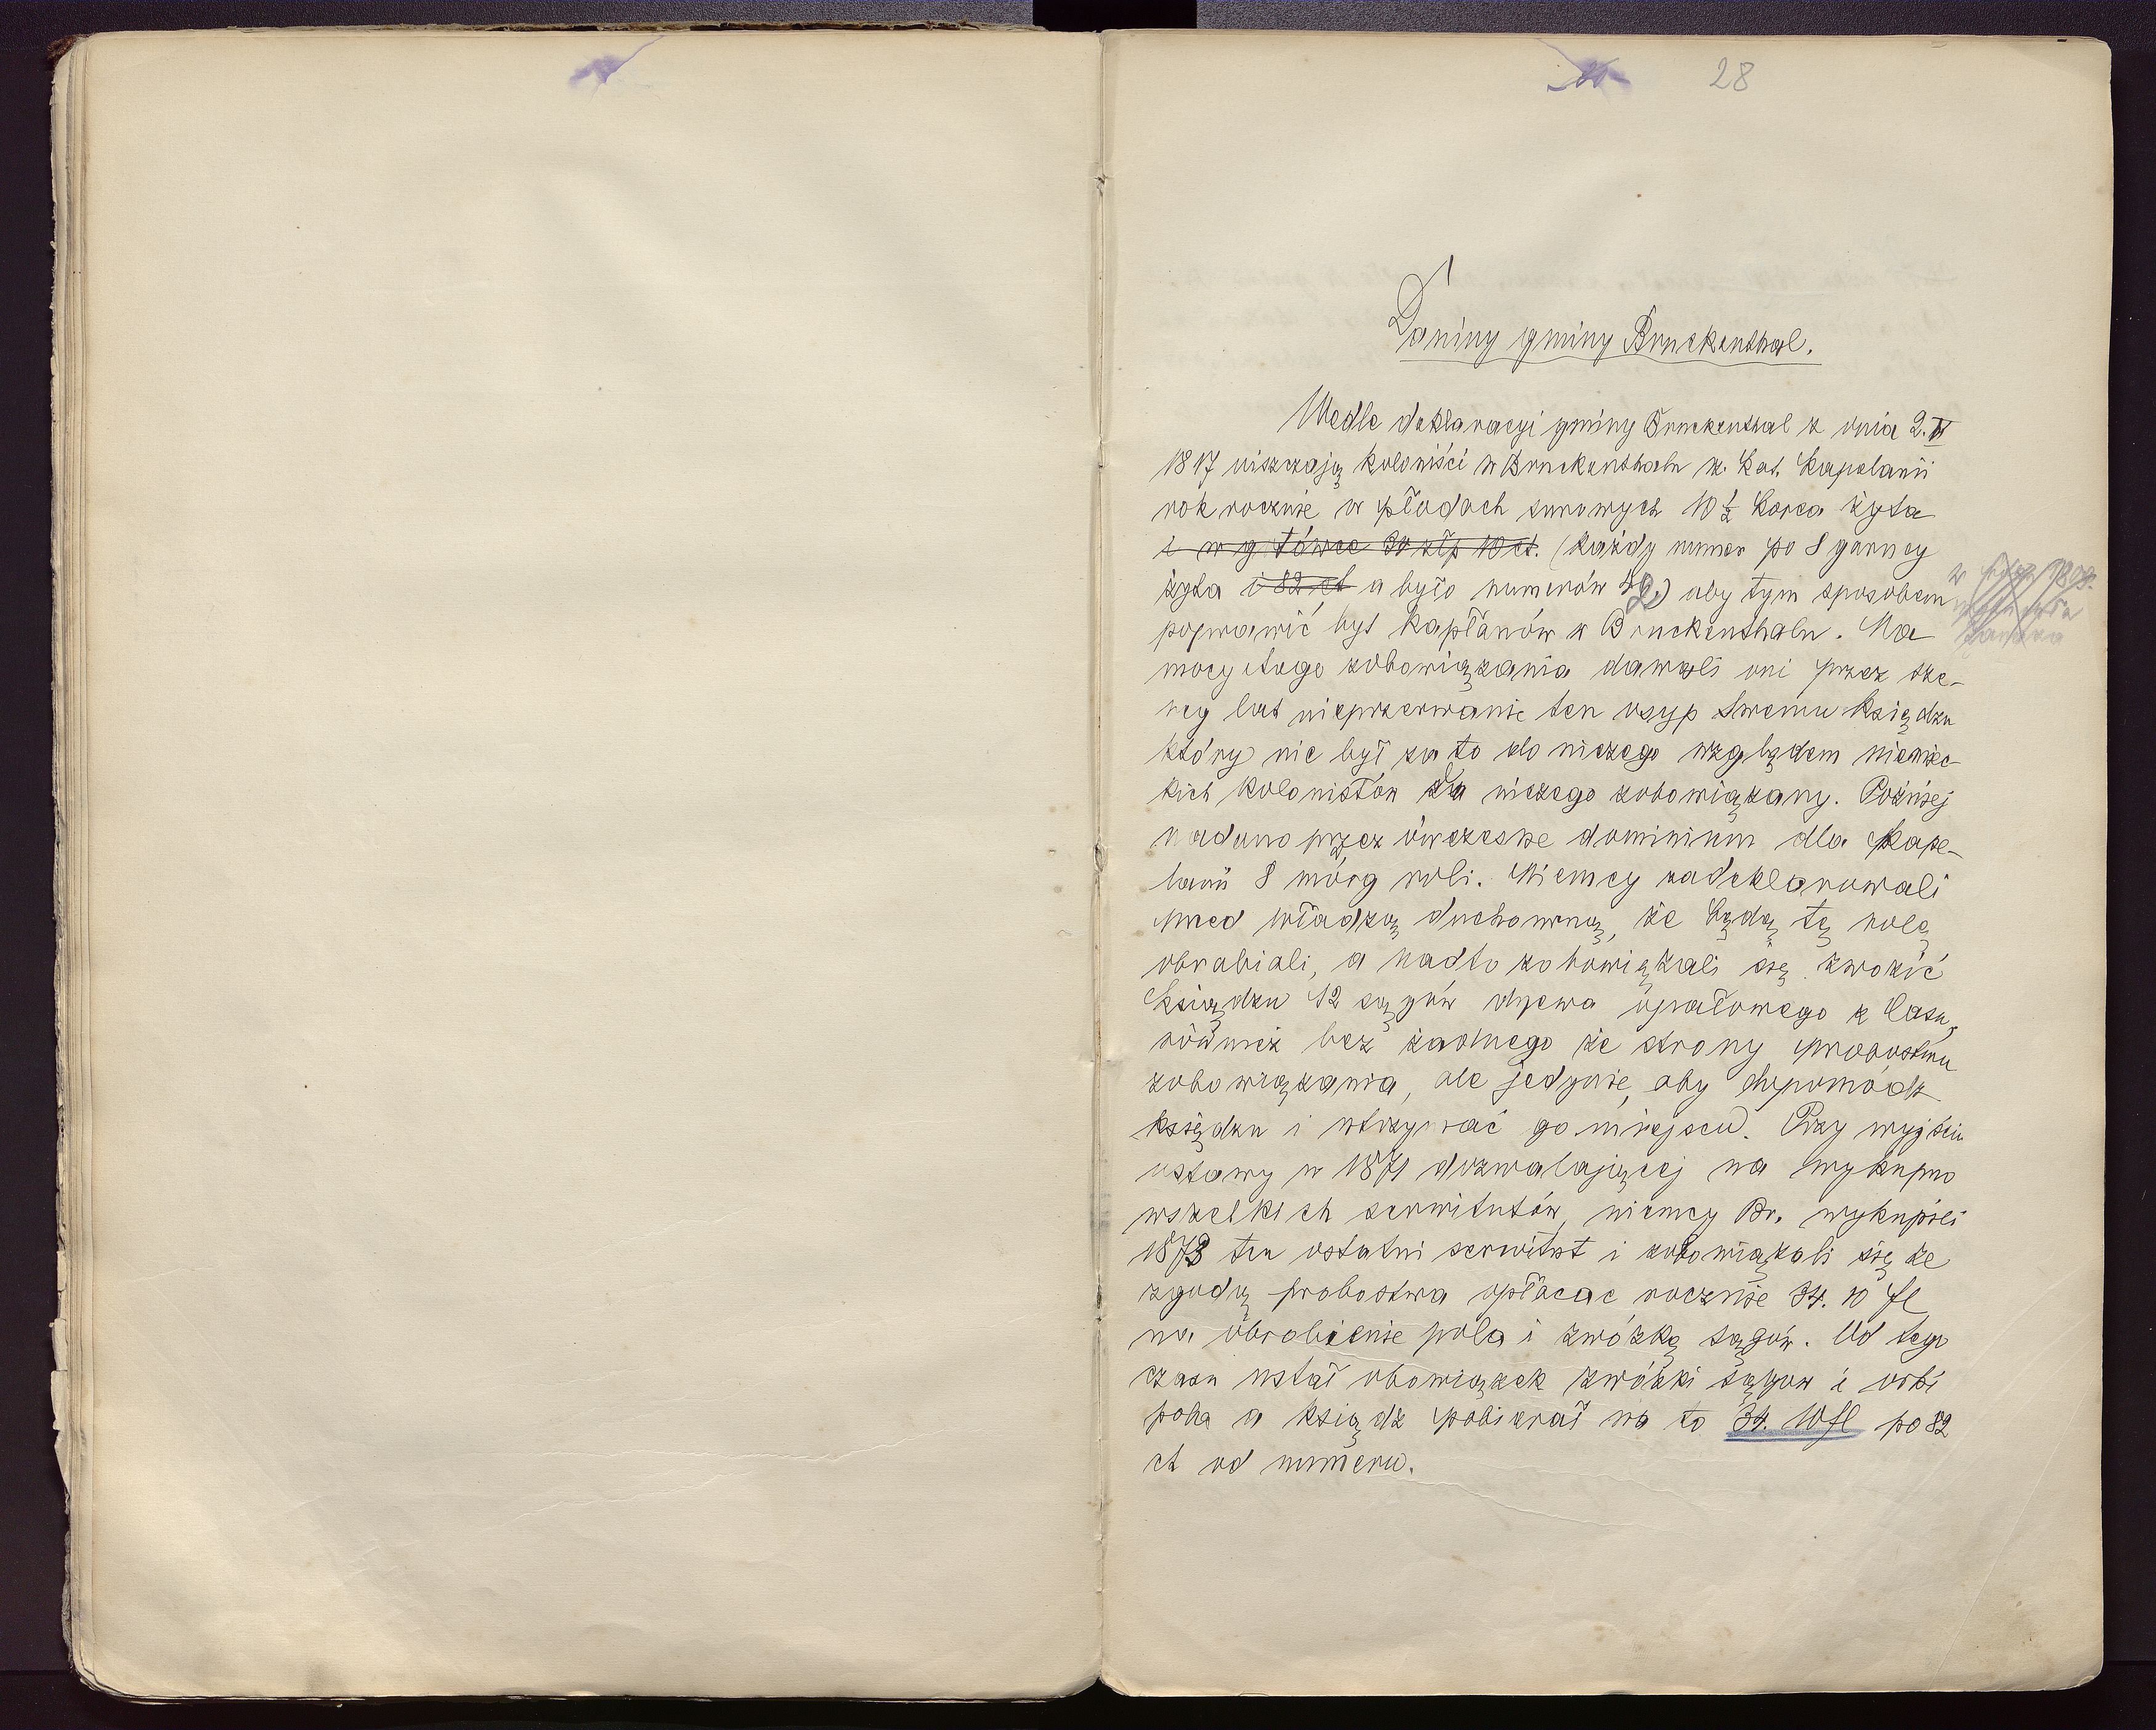 28
Daniny gminy Bruckenthal.
Wedle deklaracyi gminy Bruckenthal z dnia 2.
1817 uiszczają koloniści w Bruckenthalu r. kat. kapelanii
rok rocznie w płodach surowych 10 ½ korca żyta
i w gotówce 34 złp 10 ct. (każdy numer po 8 garncy
żyta i 82 ct a było numerów 42) aby tym sposobem
poprawić byt kapłanów w Bruckenthalu. Na
mocy tego zobowiązania dawali oni przez sze-
reg lat nieprzerwanie ten osyp swemu księdzu
który nie był za to do niczego względem niemiec-
kich kolonistów do niczego zobowiązany. Poźniej
nadano przez ówczesne dominium dla kape-
lanii 8 morg roli. Niemcy zadeklarowali
przed władzą duchowną, że będą tę rolę
obrabiali, a nadto zobowiązali się zwozić
księdzu 12 sągów drzewa opałowego z lasu,
również bez żadnego ze strony probostwa
zobowiązania, ale jedynie, aby dopomódz
księdzu i utrzymać go miejscu. Przy wyjściu
ustawy w 1871 dozwalającej na wykupno
wszelkich serwitutów, niemcy Br. wykupili
1873 ten ostatni serwitut i zobowiązali się ze
zgodą probostwa opłacac rocznie 34. 10 fl
na obrobienie pola i zwózkę sągów. Od tego
czasu ustał obowiązek zwózki sągow i
pola a ksiądz pobierał na to 34. 10 fl po 82
ct od numeru.
1898.